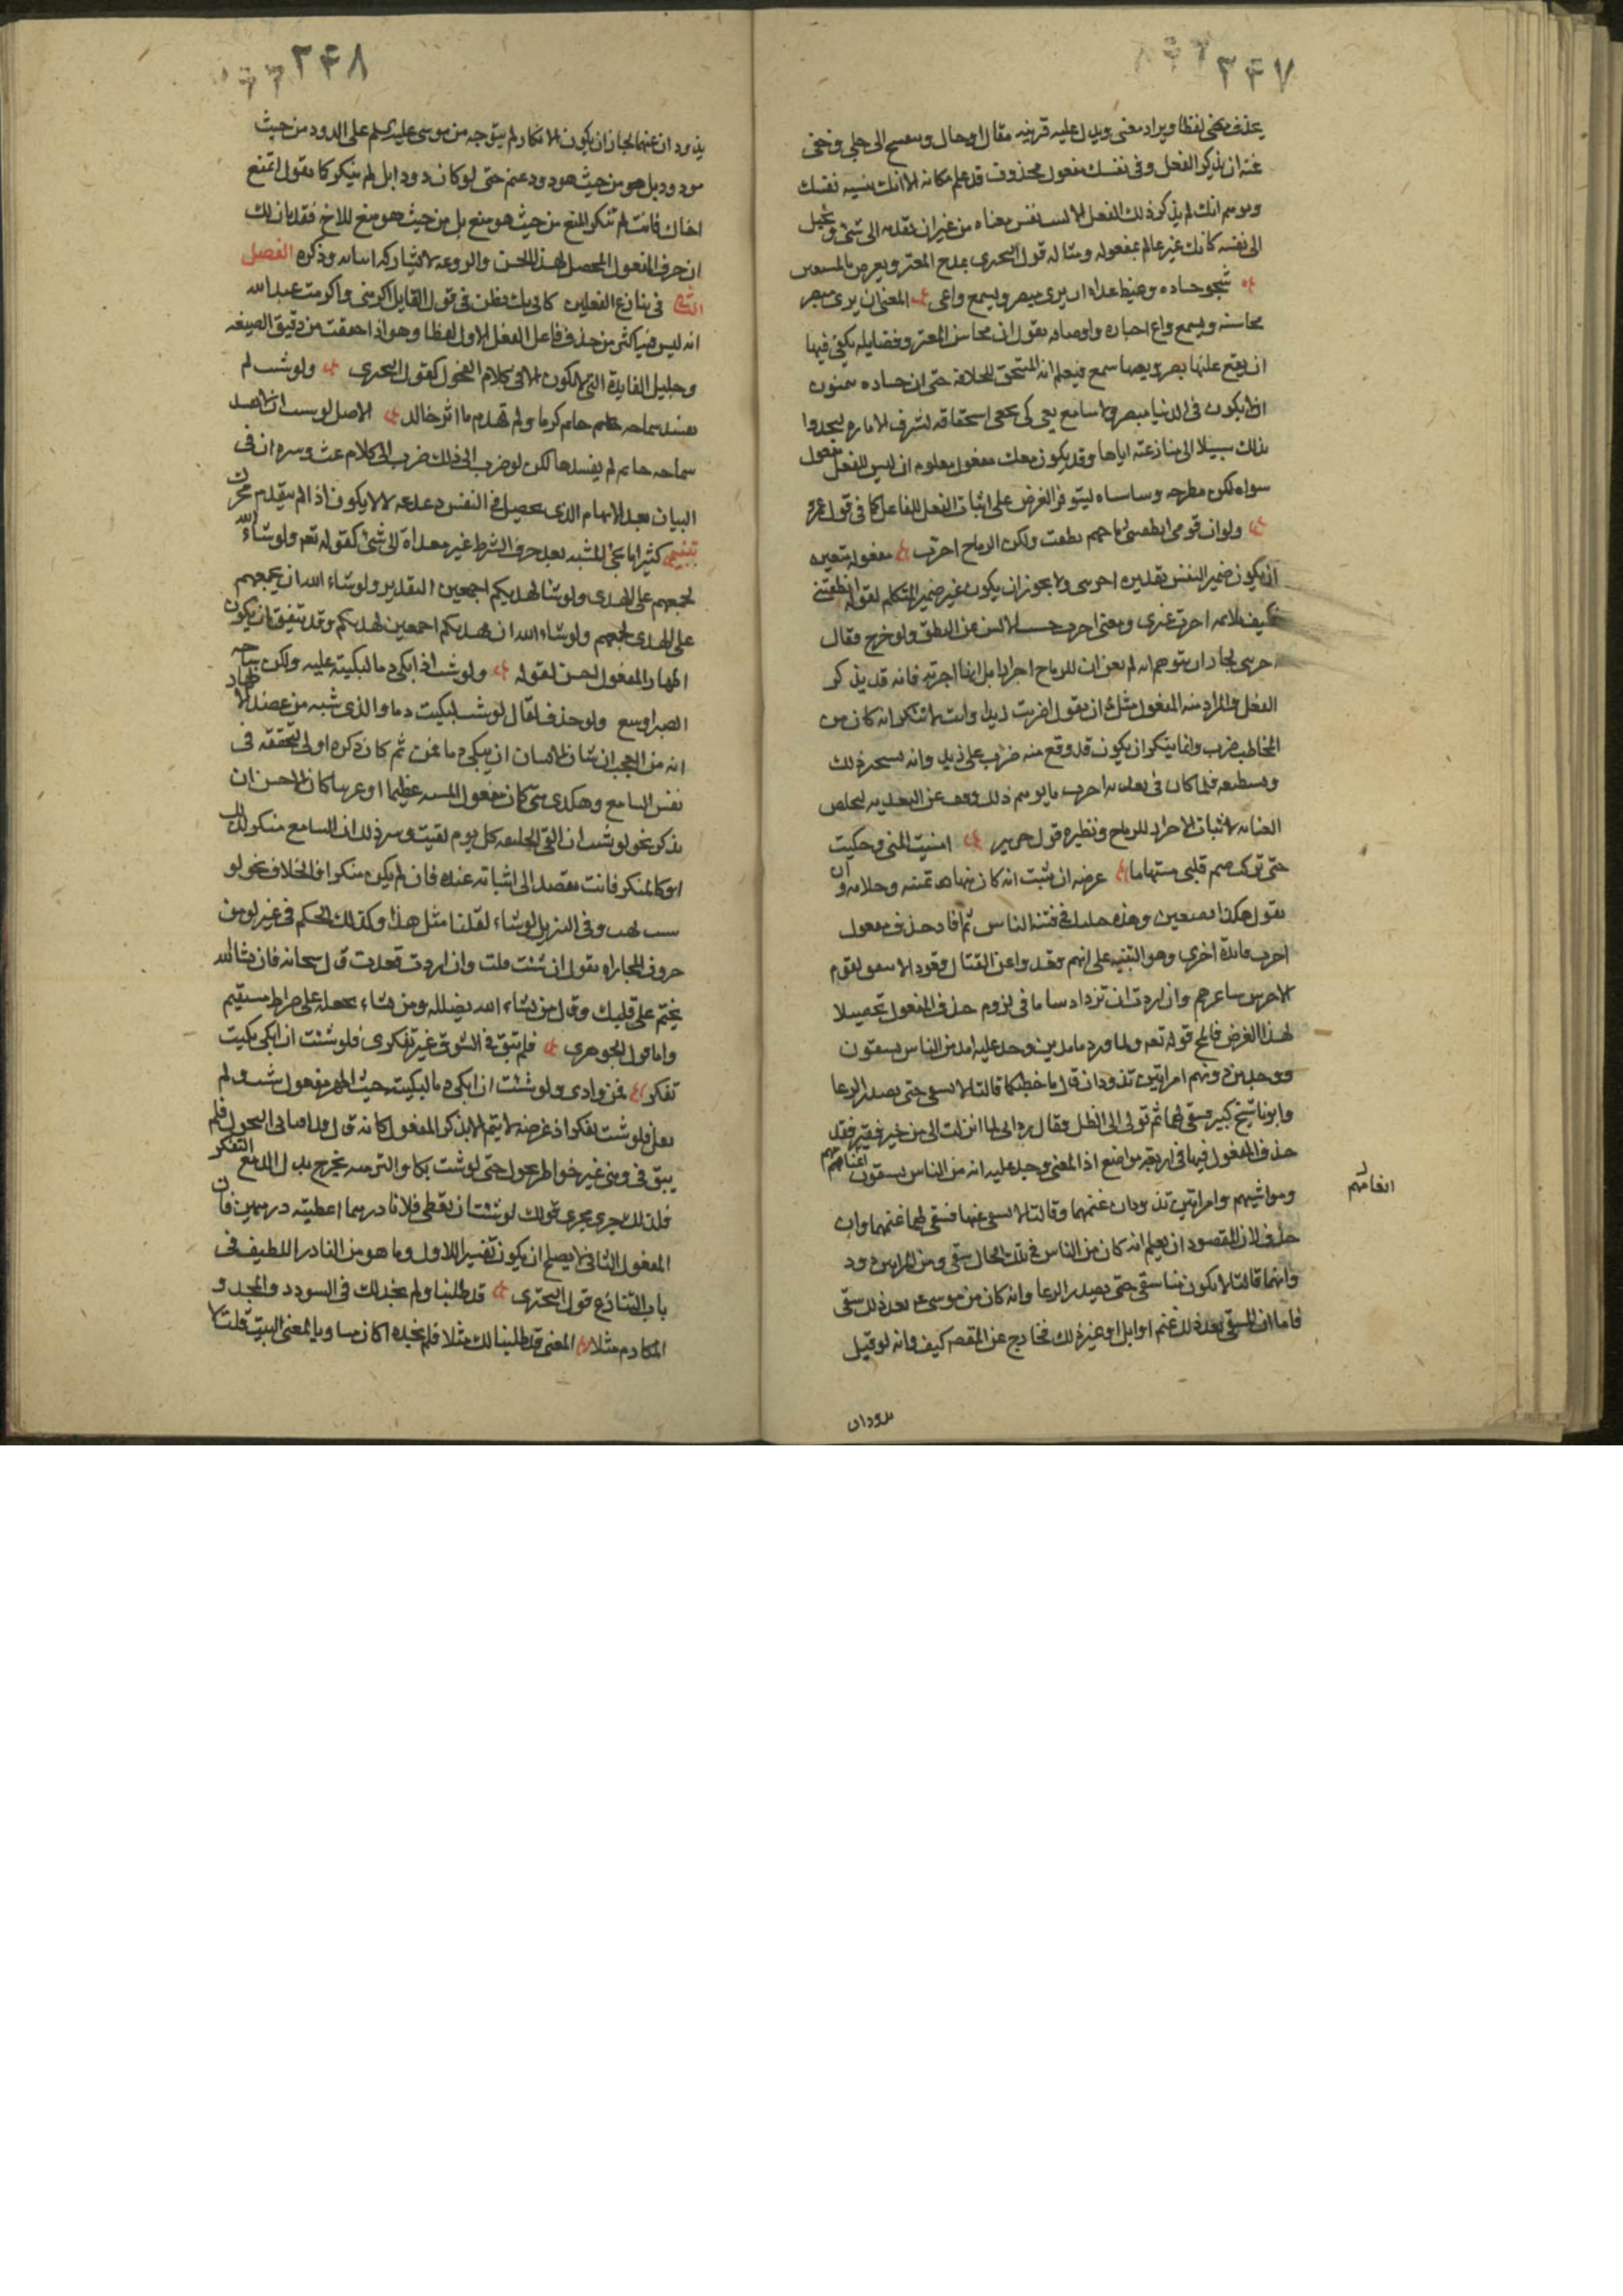 ٢٤٧
يحذف مفعى لفظا ويراد معنى ويدل عليه قرينه مقال او حال وسمسح الى جلي وخفى
عنه ان يذكر الفعل وفى نفسك مفعول محذوف قد علم مكانه الا انك تنسيه نفسك
وتوهم انك لم يذكر ذلك الفعل الا لسب نفس معناه من غيران تعديه الى شئ وتخيل
الى نفسه كانك غير عالم بمفعوله ومثاله قول البحترى بمدح المعتز ويعرض بالمستعين
شجو حساده وغيظ عداه ان يرى مبصر ويسمع واعى المعنى ان يرى مبصر
محاسنه ويسمع واع اخباره واوصافه يقول ان محاسن المعتز وفضايله يكفى فيها
ان يقع عليها بصر ويعيها سمع فيعلم انه المستحق للخلافة حتى ان حساده يتمنون
ان لا يكون فى الدنيا مبصر ولا سامع يعى كى يخفى استحقاقه لشرف الاماره ليجدوا
بذلك سبيلا الى منازعته اياها وقد يكون معك مفعول معلوم ان ليس للفعل مفعول
سواه لكن تطرحه وتناساه ليتوفر الغرض على اثبات الفعل للفاعل كما فى قول عمرو
ولو ان قومى انطقتنى رماحهم نطقت ولكن الرماح اجرت مفعوله بتعين
ان يكون ضمير النفس تقديره اجرتنى ولا يجوز ان يكون غير ضمير المتكلم لقوله انطقتنى
فكيف يلايمه اجرت غيرى ومعنى اجرت حبست الالسن عن النطق ولو خرج فقال
اجرتنى لجاز ان يتوهم انه لم يعن ان للرماح اجرارا بل انها اجرته فانه قد يذكر
الفعل والمراد منه المفعول مثل ان يقول اضربت زيدا وانت لا تنكر انه كان من
المخاطب ضرب وانما ينكر ان يكون قد وقع منه ضرب على زيد وانه يستجيز ذلك
ويستطيعه فلما كان فى تعديه اجرت ما يوهم ذلك وقف عن التعديه ليخلص
العنايه لاثبات الاجرار للرماح ونظيره قول جرير امنيت المنى وحكيت
حتى تركت ضمير قلبى مستهاما غرضه ان يثبت انه كان منها تمنيه وخلابه وان
يقول هكذا تصنعين وهذه حيلك فى فتنة الناس ثم افاد حذف مفعول
اجرت فائدة اخرى وهو التنبيه على انهم وقعدوا عن القتال وقعود الاسعو لقوم
الاجرس ساعرهم وان اردت ان تزداد ساما فى لزوم حذف المفعول تحصيلا
لهذا الغرض فالمح قوله تعم ولما ورد ماء مدين وجد عليه امة من الناس يسقون
ووجد من دونهم امراتين تذودان قال ما خطبكما قالتا لا نسقى حتى يصدر الرعا
وابونا شيخ كبير فسقى لهما ثم تولى الى الظل فقال رب انى لما انزلت الى من خير فقير فقد
حذف المفعول فيها فى اربعة مواضع اذ المعنى وجد عليه امة من الناس يسقون اغنامهم
ومواشيهم وامراتين تذودان غنمهما وقالتا لا نسقى غنمها فسقى لهما غنمهما وان
حذف لان المقصود ان يعلم انه كان من الناس فى تلك الحال سقى ومن المراتين ذود
وانهما قالتا لا يكون منا سقى حتى يصدر الرعا وانه كان من موسى ع بعد ذلك سقى
فاما ان المسقى بعد ذلك غنم او ابل او غير ذلك فخارج عن المقصد كيف وانه لو قيل
انعامهم
يذودان
٢٤٨
يذودان غنمهما لجاز ان يكون الانكار لم يتوجه من موسى عليه السلم على الذود من حيث
هو ذود بل هو من حيث هو ذود غنم حتى لو كان ذود ابل لم ينكر كما يقول اتمنع
اخاك فانت لم تنكر المنع من حيث هو منع بل من حيث هو منع للاخ فقد بان لك
ان حذف المفعول المحصل لهذا الحسن والروعه لا يشاركه اتيانه وذكره الفصل
الثانى فى تنازع الفعلين كانى بك تظن فى قول القايل اكرمنى واكرمت عبد الله
انه ليس فيه اكثر من حذف فاعل الفعل الاول لفظا وهو اذا حققت من دقيق الصنعه
وجليل الفايدة التى لا تكون الا فى كلام الفحول كقول البحترى ولو شئت لم
تفسد سماحه حاتم كرما ولم تهدم مآثر خالد الاصل لو شئت ان لا تفسد
سماحه حاتم لم يفسدها لكن لو ضرب الى ذلك ضرب الى كلام غث وسره ان فى
البيان بعد الابهام الذى يحصل فى النفس دغدغه لا يكون اذا لم يتقدم محرك
تتميم كثيرا ما يجئ المشيه بعد حرف الشرط غير معداة الى شئ كقوله تعم ولو شاء الله
لجمعهم على الهدى ولو شاء لهديكم اجمعين التقدير ولو شاء الله ان يجمعهم
على الهدى لجمعهم ولو شاء الله ان يهديكم اجمعين لهديكم وقد يتفق ان يكون
اظهار المفعول احسن كقوله ولو شئت ان ابكى دما لبكيته عليه ولكن ساحه
الصبر اوسع ولو حذف لقال لو شئت لبكيت دما والذى شبه من عضد الاظهار
انه من العجب ان يشاء الانسان ان يبكى دما فمن ثم كان ذكره اولى لتحققه فى
نفس السامع وهكذى متى كان مفعول المشيه عظيما او غريبا كان الاحسن ان
يذكر نحو لو شئت ان القى الخليفه كل يوم لقيت وسر ذلك ان السامع منكر لذلك
او كالمنكر فانت تقصد الى اثباته عنده فان لم يكن منكرا فالخلاف نحو لو
شئت قمت وفى التنزيل لو نشاء لقلنا مثل هذا وكذلك الحكم فى غير لو من
حروف المجازاه تقول ان شئت قلت وان اردت قعدت قال سبحانه فان يشا الله
يختم على قلبك وقال من يشاء الله يضلله ومن يشاء يجعله على صراط مستقيم
واما قول الجوهرى فلم يبق فى الشوق غير تفكرى فلو شئت ان ابكى بكيت
تفكرا فمن وادى ولو شئت ان ابكى دما لبكيته حيث اظهر مفعول شئت ولم
يقل فلو شئت تفكرا اذ غرضه لا يتم الا بذكر المفعول كانه قال قد افنانى النحول فلم
يبق فى ومنى غير خواطر تجول حتى لو شئت بكا والتمسته يخرج بدل الدمع التفكر
فلذلك جرى مجرى قولك لو شئت ان تعطى فلانا درهما اعطيته درهمين فان
المفعول الثانى لا يصلح ان يكون تفسيرا للاول وما هو من النادر اللطيف فى
باب التنازع قول البحترى قد طلبنا ولم نجد لك فى السودد والمجد و
المكارم مثلا المعنى قد طلبنا لك مثلا فلم نجده اكان مساويا لمعنى البيت قلت لا